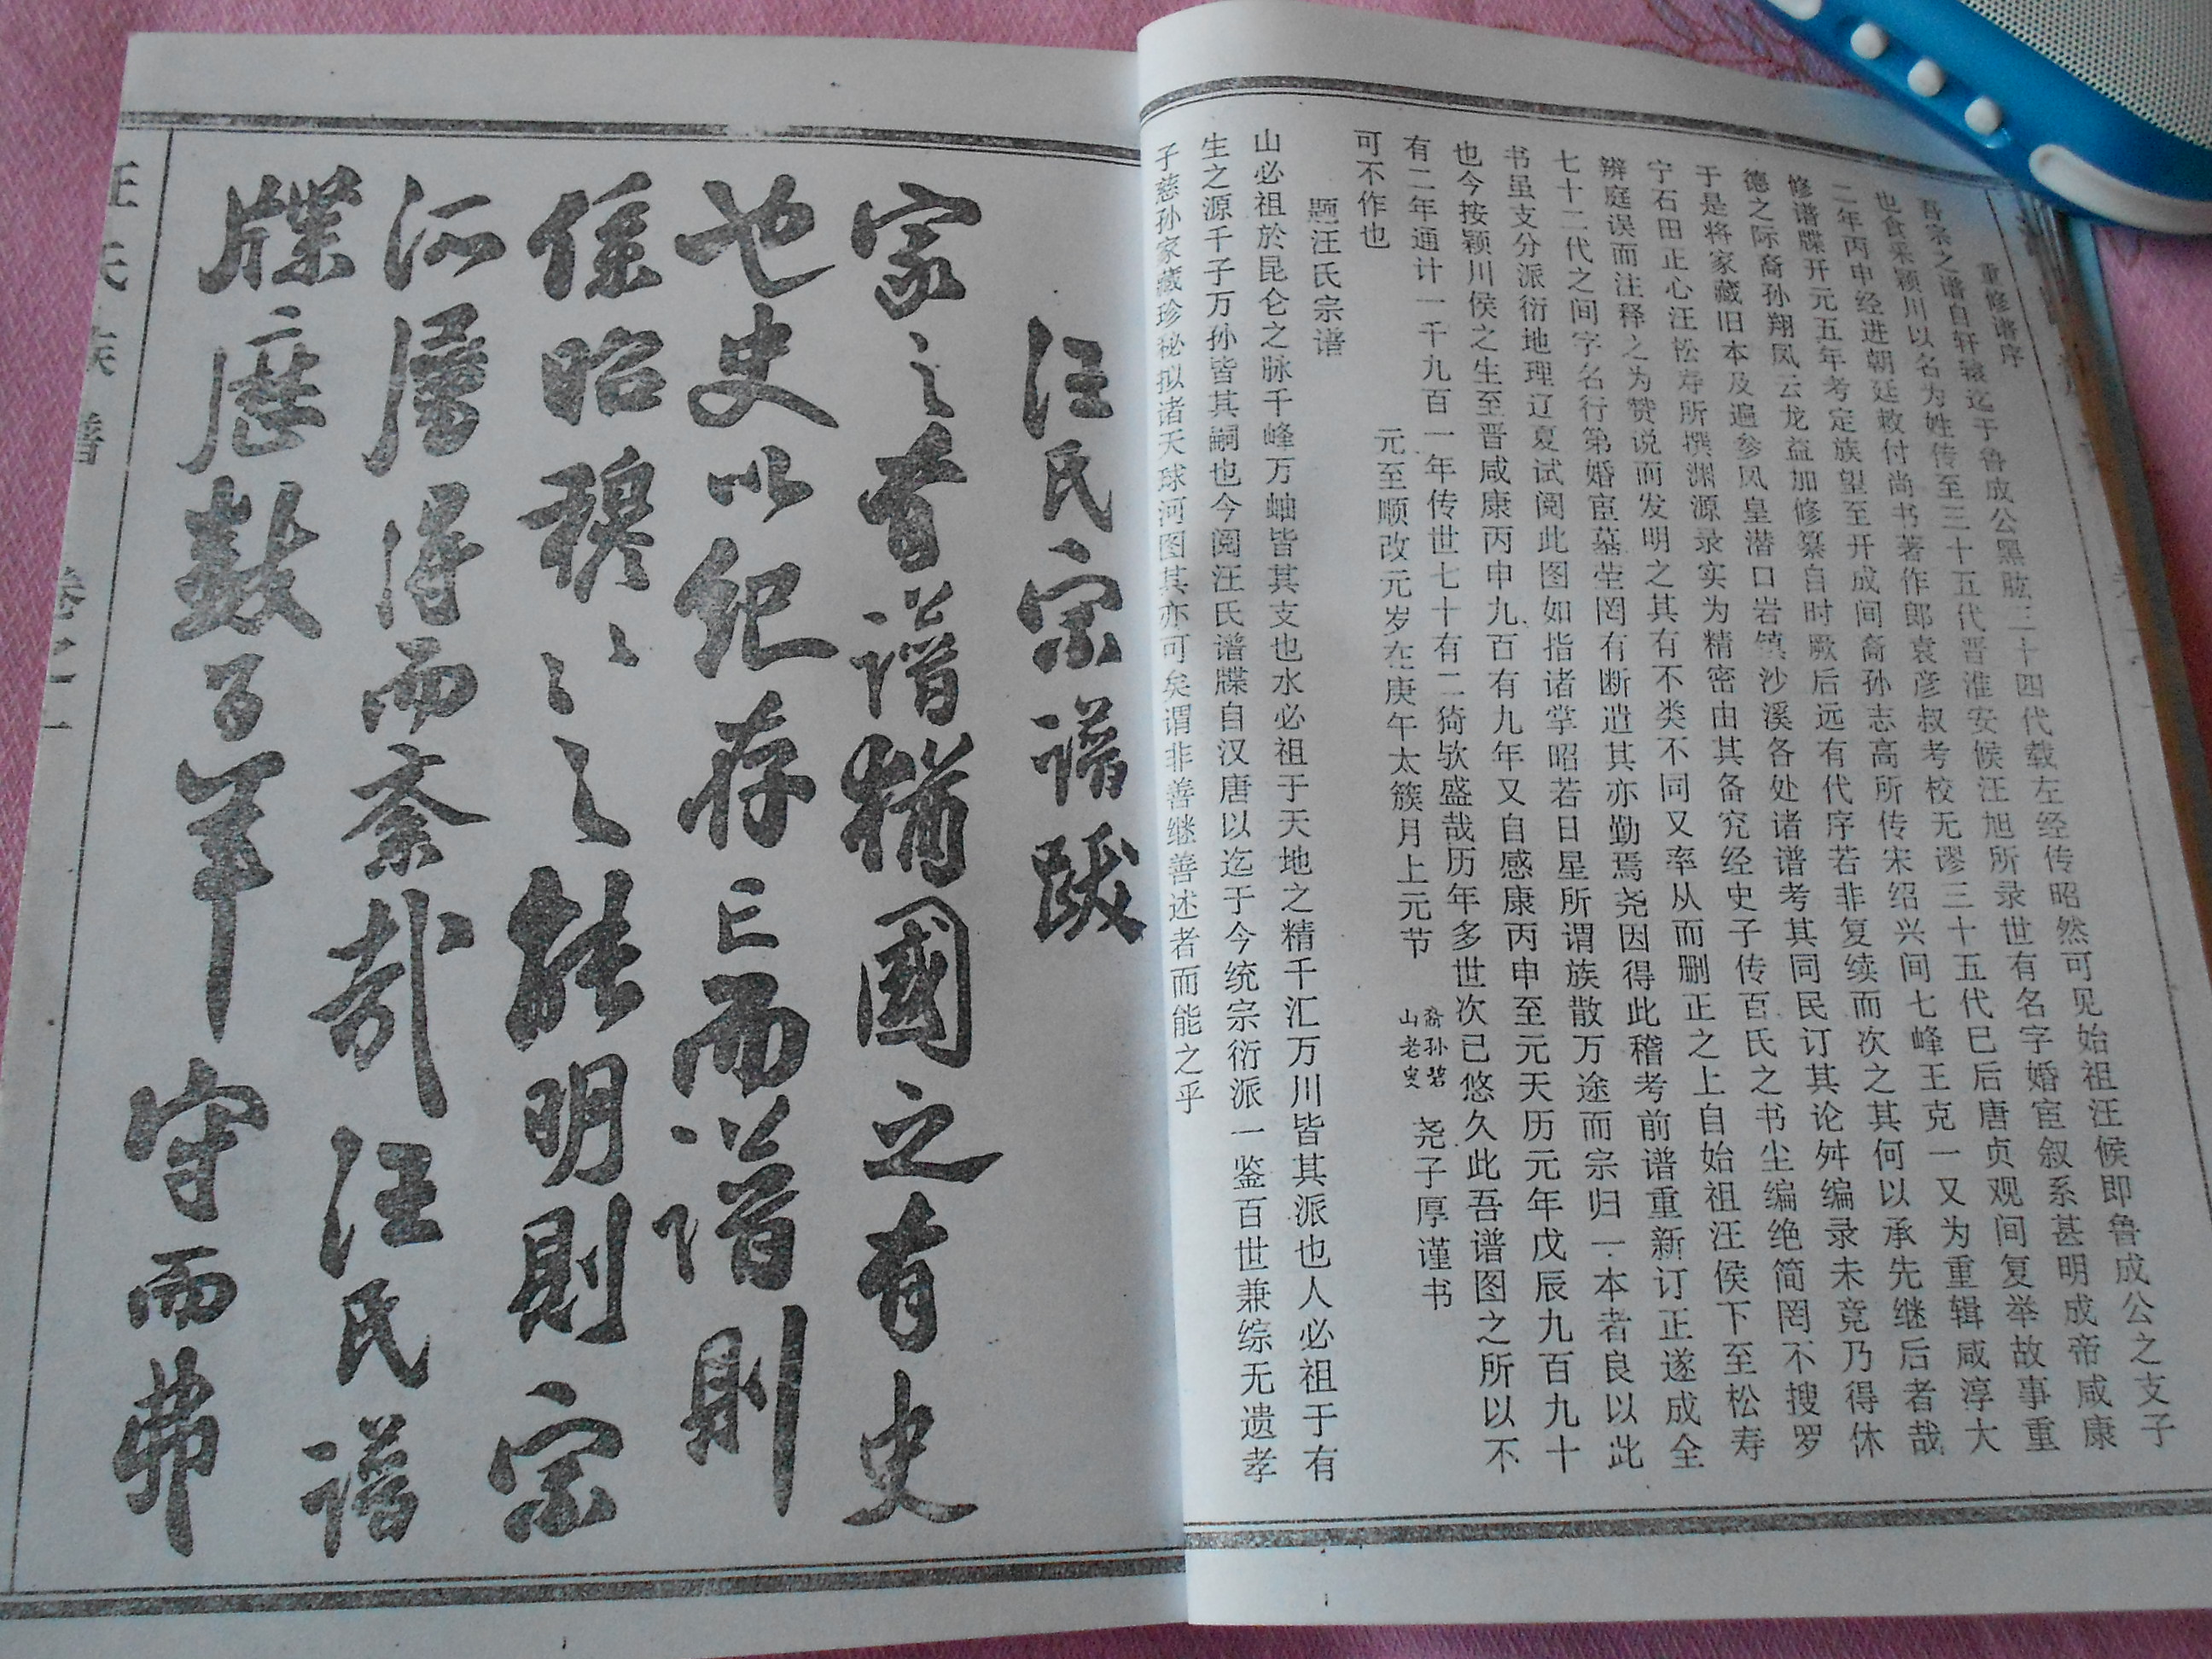 重修谱序
吾宗之谱自轩辕迄于鲁成公黑肱三十四代载左经传昭然可见始祖汪候即鲁成公之支子
也食采颖川以名为姓传至三十五代晋淮安候汪旭所录世有名字婚宦叙系甚明成帝咸康
二年丙申经进朝廷敕付尚书著作郎袁彦叔考校无谬三十五代巳后唐贞观间复举故事重
修谱牒开元五年考定族望至开成间裔孙志高所传宋绍兴间七峰王克一又为重辑咸淳大
德之际裔孙翔凤云龙益加修纂自时厥后远有代序若非复续而次之其何以承先继后者哉
于是将家藏旧本及遍参凤皇潜口岩镇沙溪各处诸谱考其同民订其论舛编录未竟乃得休
宁石田正心汪松寿所撰渊源录实为精密由其备究经史子传百氏之书尘编绝简罔不搜罗
辨庭误而注释之为赞说而发明之其有不类不同又率从而删正之上自始祖汪侯下至松寿
七十二代之间字名行第婚宦墓茔罔有断逬其亦勤焉尧因得此稽考前谱重新订正遂成全
书虽支分派衍地理辽夏试阅此图如指诸掌昭若日星所谓族散万途而宗归一本者良以此
也今按颖川侯之生至晋咸康丙申九百有九年又自感康丙申至元天历元年戊辰九百九十
有二年通计一千九百一年传世七十有二猗欤盛哉历年多世次已悠久此吾谱图之所以不
可不作也
元至顺改元岁在庚午太簇月上元节 裔孙碧山老叟 尧子厚谨书
题汪氏宗谱
山必祖於昆仑之脉千峰万岫皆其支也水必祖于天地之精千汇万川皆其派也人必祖于有
生之源千子万孙皆其嗣也今阅汪氏谱牒自汉唐以迄于今统宗衍派一鉴百世兼综无遗孝
子慈孙家藏珍秘拟诸天球河图其亦可矣谓非善继善述者而能之乎
汪氏宗谱跋
家之有谱犹國之有史
也史以纪存亡而谱则
系昭穆昭穆之能明則宗
派得而紊哉汪氏谱
牒歷数百年守而弗
汪氏族谱 卷之一